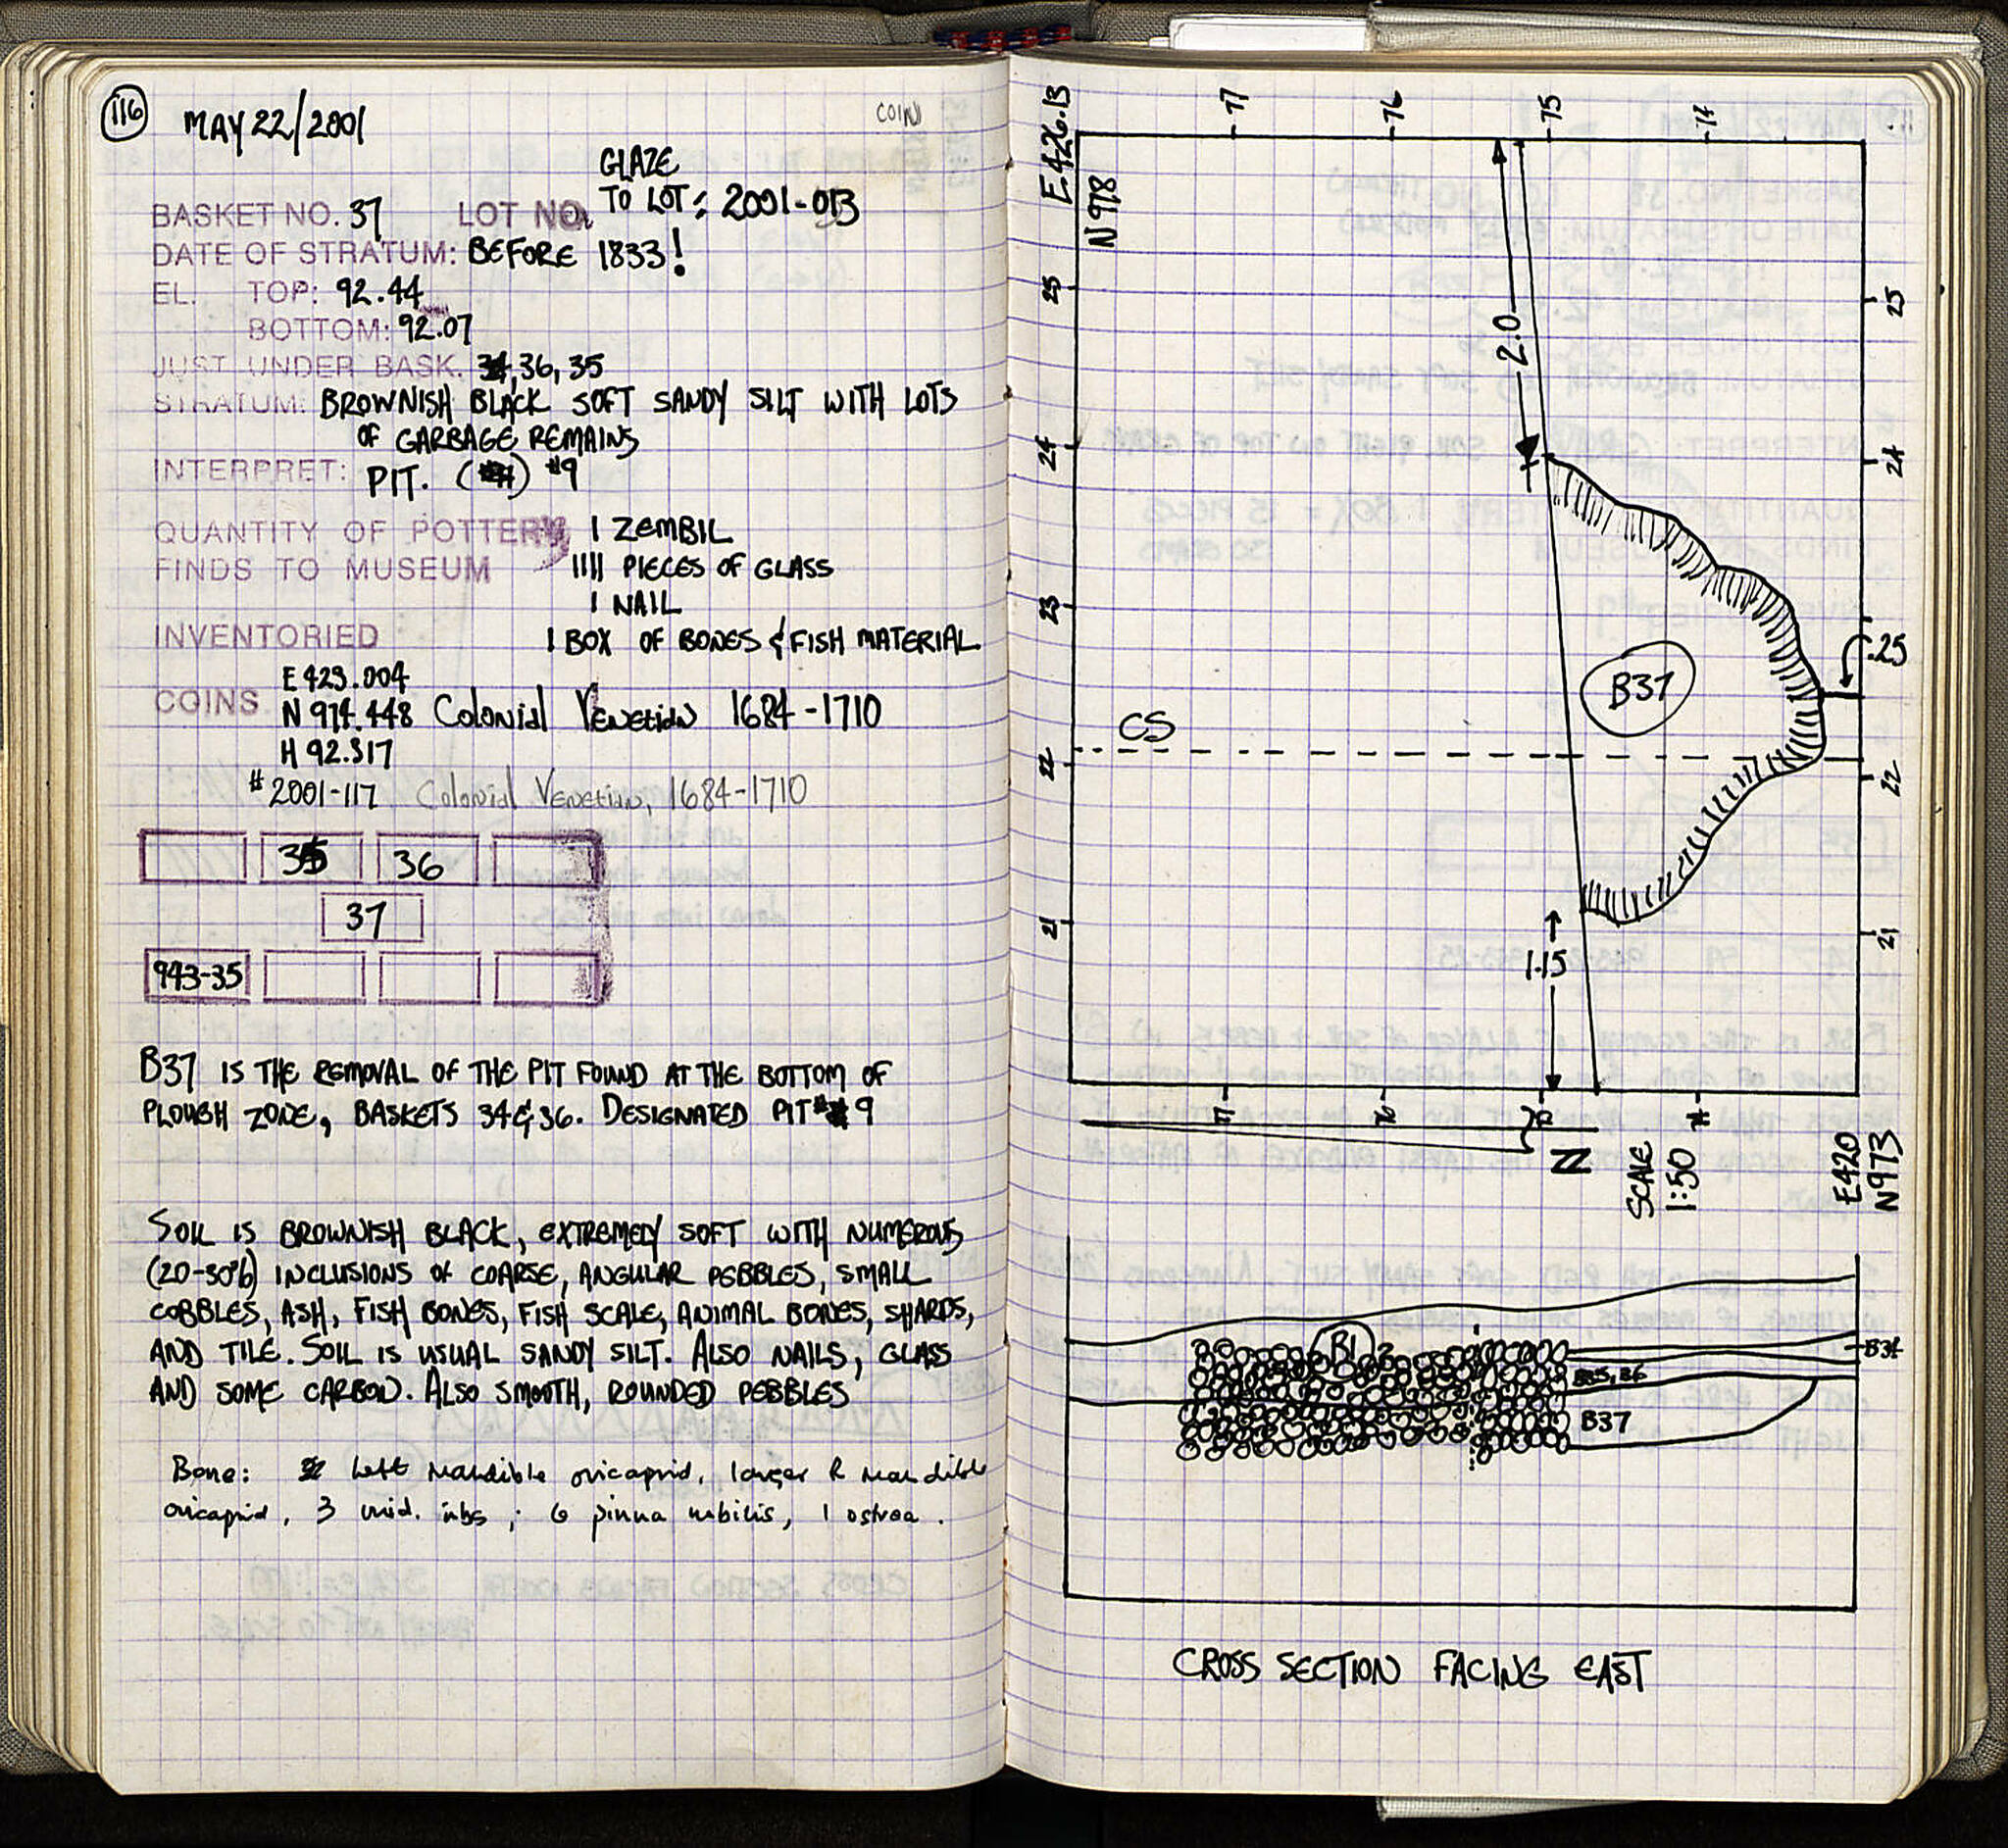 116
MAY 22/2001
COIN
GLAZE
BASKET NO. 37 LOT NO. TO LOT: 2001-013
DATE OF STRATUM: BEFORE 1833!
EL. TOP: 92.44
BOTTOM: 92.07
JUST UNDER BASK. 34, 36, 35
STRATUM: BROWNISH BLACK SOFT SANDY SILT WITH LOTS
OF GARBAGE REMAINS
INTERPRET: PIT. #9
QUANTITY OF POTTERY 1 ZEMBIL
FINDS TO MUSEUM 1111 PIECES OF GLASS
1 NAIL
INVENTORIED 1 BOX OF BONES & FISH MATERIAL
E 423.004
COINS N 974.448 Colonial Venetian 1684-1710
H 92.317
# 2001-117 Colonial Venetian, 1684-1710
35 36
37
943-35
B37 IS THE REMOVAL OF THE PIT FOUND AT THE BOTTOM OF
PLOUGH ZONE, BASKETS 34 & 36. DESIGNATED PIT # 9
SOIL IS BROWNISH BLACK, EXTREMELY SOFT WITH NUMEROUS
(20-30%) INCLUSIONS OF COARSE, ANGULAR PEBBLES, SMALL
COBBLES, ASH, FISH BONES, FISH SCALE, ANIMAL BONES, SHARDS,
AND TILE. SOIL IS USUAL SANDY SILT. ALSO NAILS, GLASS
AND SOME CARBON. ALSO SMOOTH, ROUNDED PEBBLES
Bone: left mandible ovicaprid, larger R mandible
ovicaprid, 3 mid. ribs; 6 pinna nobilis, 1 ostrea.
E 426.13
N 978
77 76 75 74
25 25
2.0
24 24
23
.25
B37
CS
22 22
21 21
1.15
77 76 75 74
N
SCALE
1:50
E420
N973
B1
B34
B35,36
B37
CROSS SECTION FACING EAST